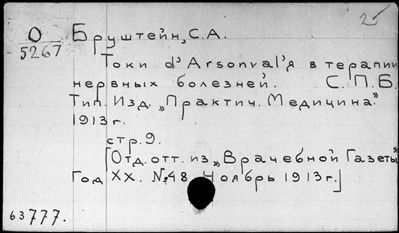 25
О
5267
Бруштейн, С.А.
Токи d'Arsonval'я в терапии
нервных болезней. С.П.Б.
Тип. Изд. „Практич. Медицина."
1913 г.
стр. 9.
[Отд. отт. из „Врачебной Газеты"
Год XX. № 48 Ноябрь 1913 г.]
63777.